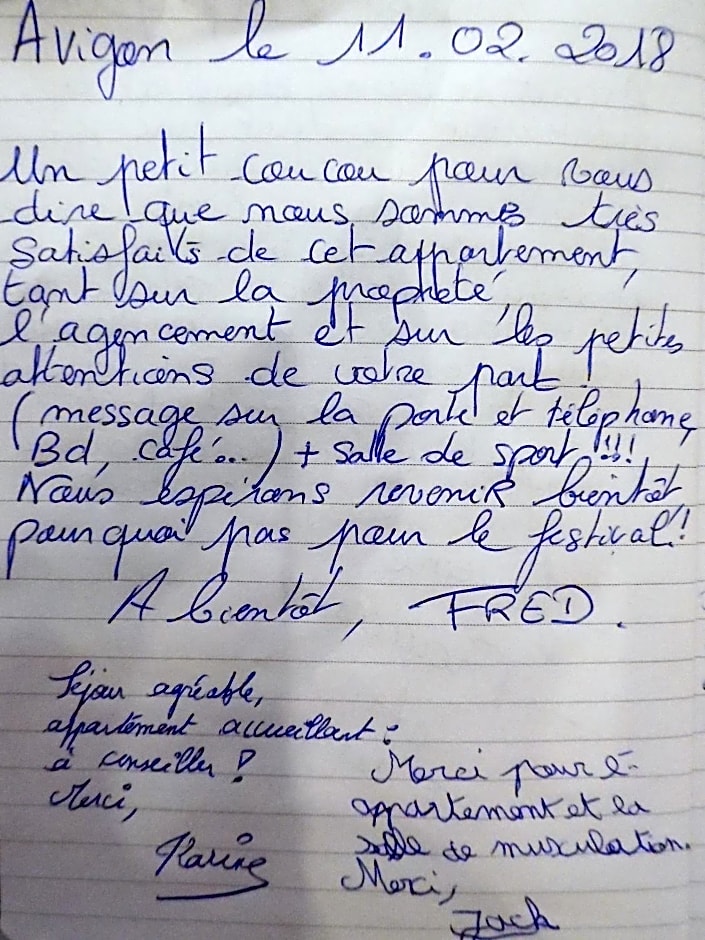 Avigon le 11.02.2018
Un petit coucou pour vous
dire que nous sommes très
satisfaits de cet appartement,
tant sur la propreté,
l'agencement et sur les petites
attentions de votre part !
(message sur la porte et téléphone,
Bd, café...) + salle de sport !!!!
Nous espérons revenir bientôt,
pourquoi pas pour le festival !!
A bientôt, FRED.
Séjour agréable,
appartement accueillant :
à conseiller !
Merci,
Karine
Merci pour l'
appartement et la
salle de musculation.
Merci,
Jack